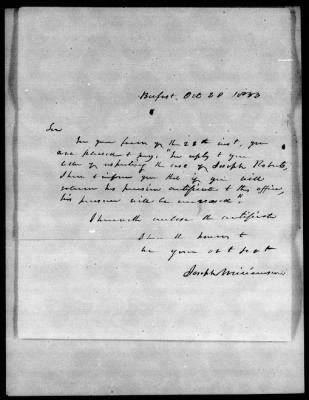 Belfast, Oct 28 1833
Sir
In your favor of the 22th inst, you
are pleased to say; "In reply to your
letter of respecting the case of Joseph Roberts,
I have to inform you that if you will
return his pension certificate to this office,
his pension will be increased".
I herewith enclose the certificate
I have the honor to
be your obt sert
Joseph Williamson